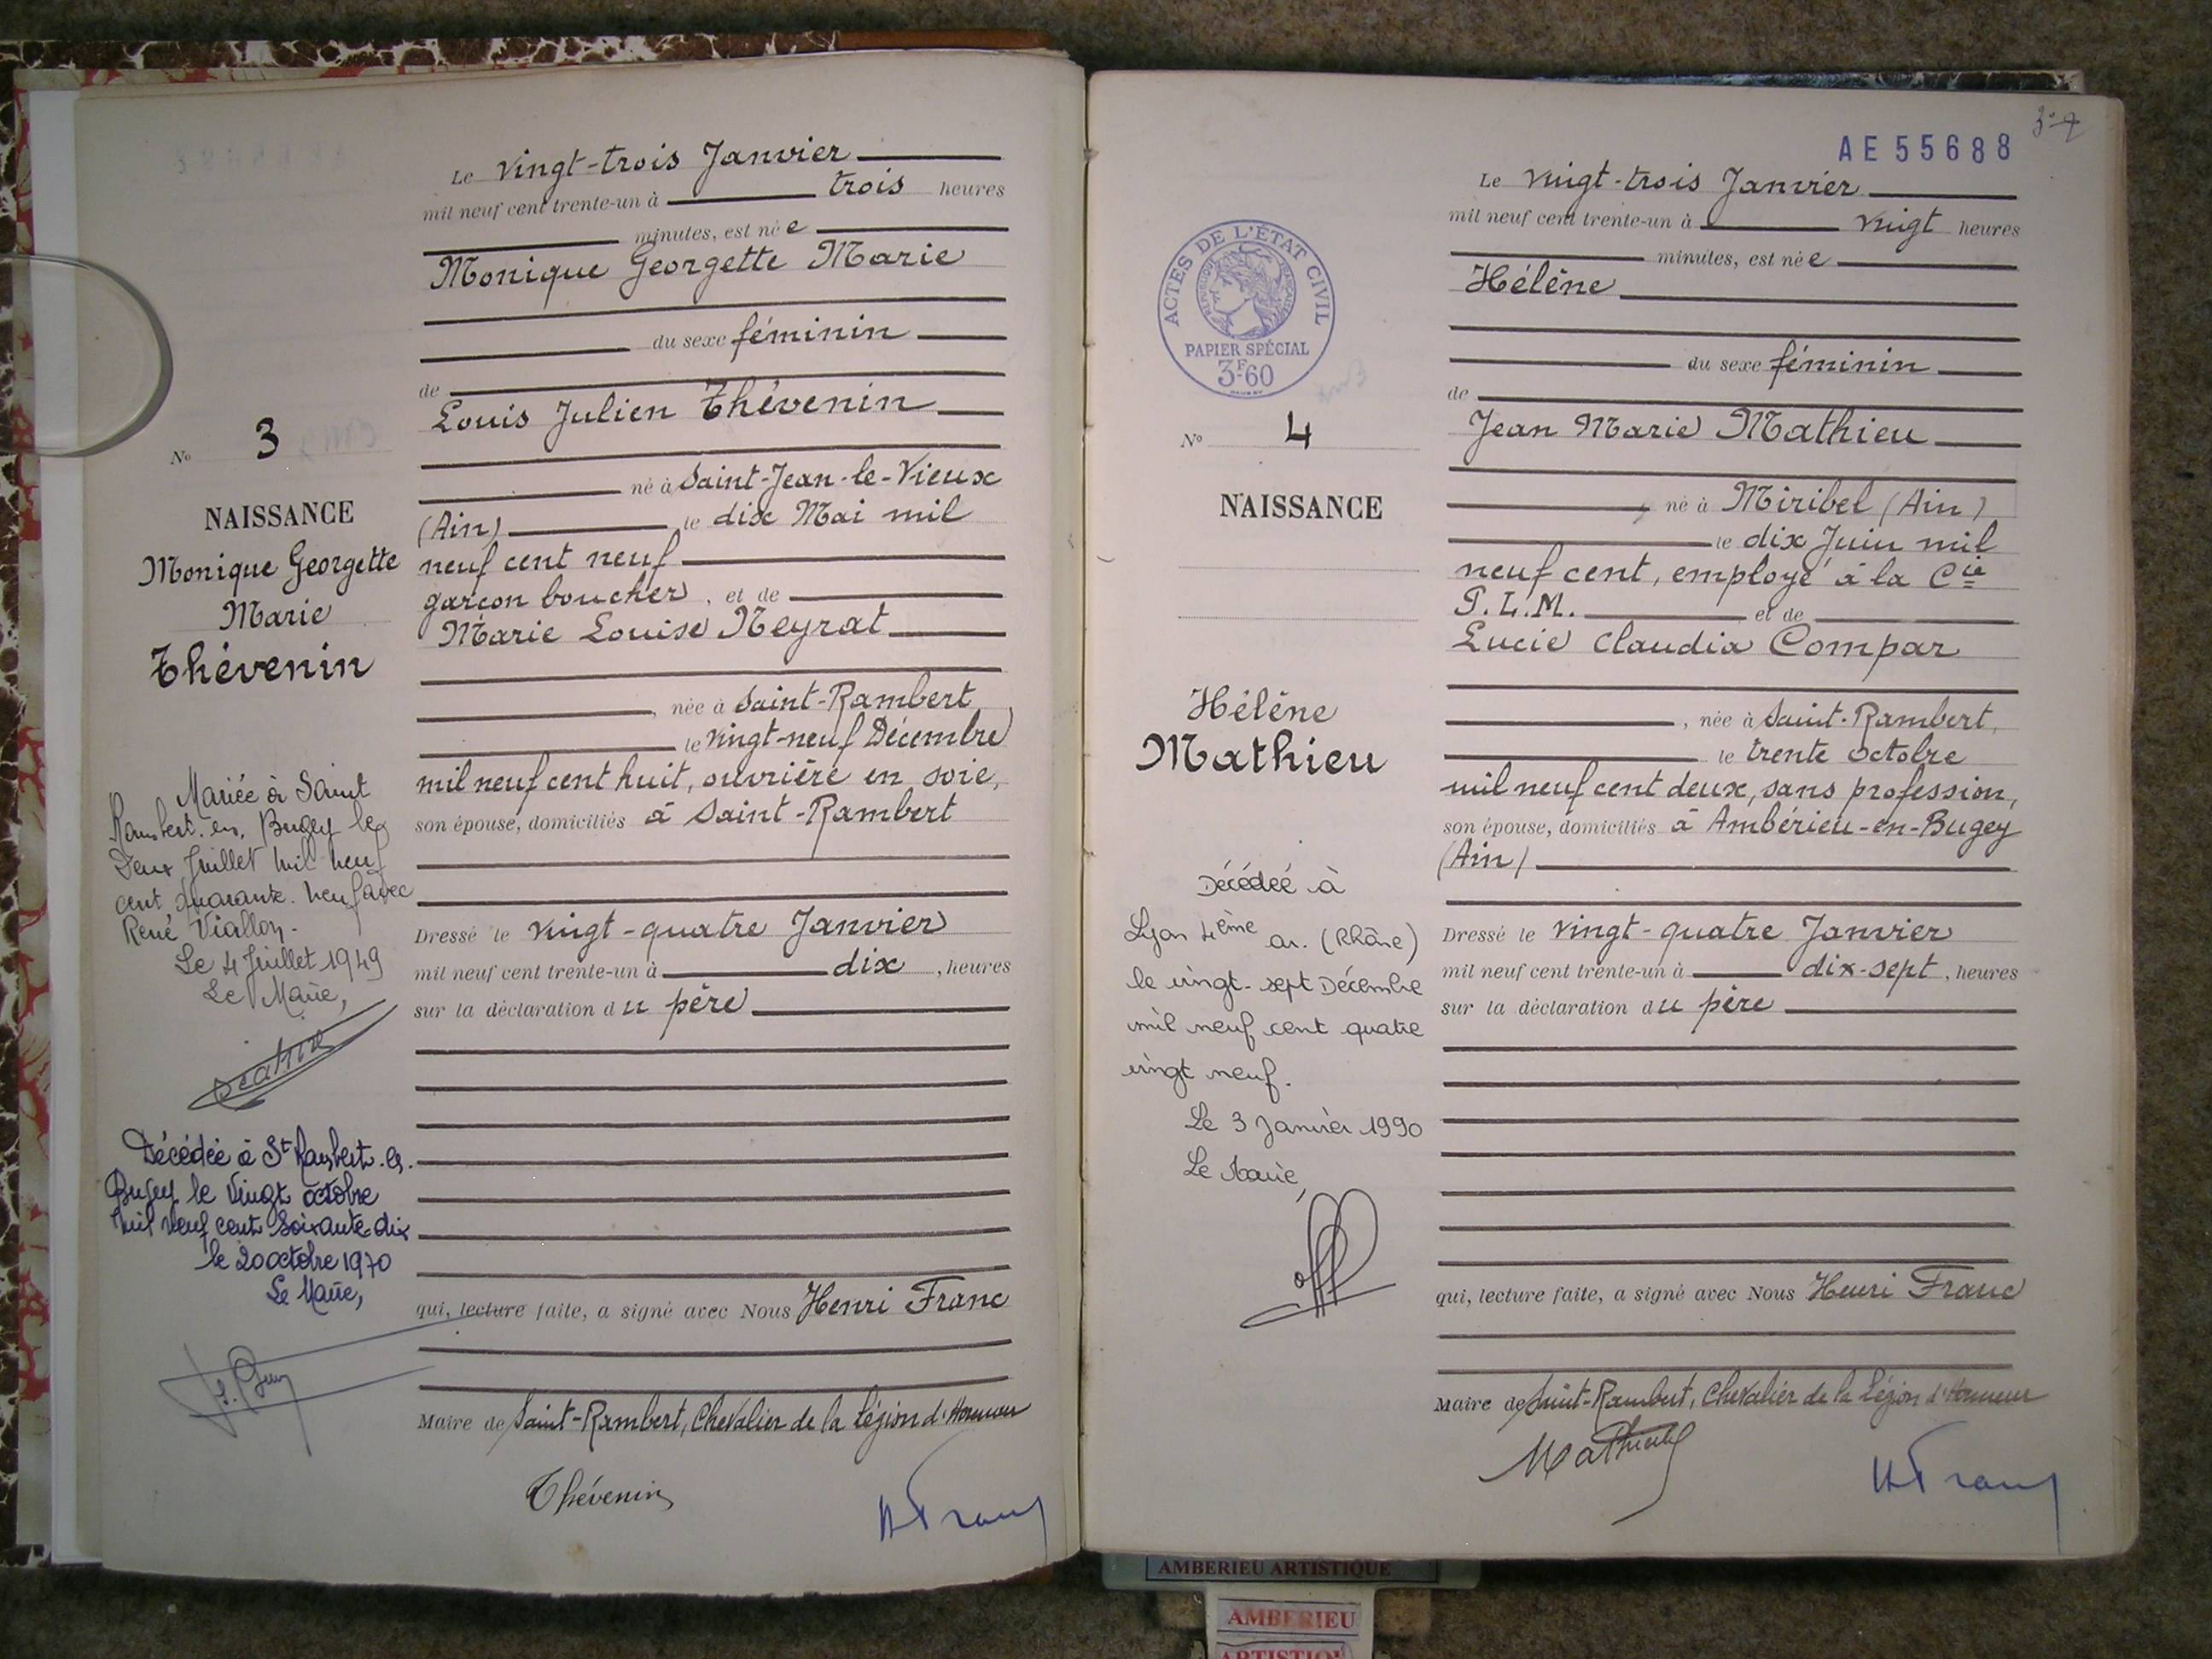 Le vingt-trois Janvier
mil neuf cent trente-un à trois heures
minutes, est née
Monique Georgette Marie
du sexe féminin
de
Louis Julien Thévenin
né à Saint-Jean-le-Vieux
(Ain) le dix Mai mil
neuf cent neuf
garçon boucher, et de
Marie Louise Neyrat
, née à Saint-Rambert
le vingt-neuf Décembre
mil neuf cent huit, ouvrière en soie,
son épouse, domiciliés à Saint-Rambert
Dressé le vingt-quatre Janvier
mil neuf cent trente-un à dix, heures
sur la déclaration du père
qui, lecture faite, a signé avec Nous Henri Franc
Maire de Saint-Rambert, Chevalier de la Légion d'Honneur
Thévenin
H Franc
No 3
NAISSANCE
Monique Georgette
Marie
Thévenin
Mariée à Saint
Rambert. en. Bugey le
Deux Juillet mil neuf
cent quarante. neuf avec
René Viallon.
Le 4 Juillet 1949
Le Maire,
Décédée à St Rambert. en.
Bugey le vingt octobre
mil neuf cent soixante dix
le 20 octobre 1970
Le Maire,
3
AE 55688
Le vingt-trois Janvier
mil neuf cent trente-un à vingt heures
minutes, est née
Hélène
du sexe féminin
de
Jean Marie Mathieu
né à Miribel (Ain)
le dix Juin mil
neuf cent, employé à la Cie
P.L.M. et de
Lucie Claudia Compar
, née à Saint-Rambert,
le trente octobre
mil neuf cent deux, sans profession,
son épouse, domiciliés à Ambérieu-en-Bugey
(Ain)
Dressé le vingt-quatre Janvier
mil neuf cent trente-un à dix-sept, heures
sur la déclaration du père
qui, lecture faite, a signé avec Nous Henri Franc
Maire de Saint-Rambert, Chevalier de la Légion d'Honneur
Mathieu
H Franc
ACTES DE L'ÉTAT CIVIL
RÉPUBLIQUE FRANÇAISE
PAPIER SPÉCIAL
3F60
No 4
NAISSANCE
Hélène
Mathieu
Décédée à
Lyon 4ème ar. (Rhône)
le vingt-sept Décembre
mil neuf cent quatre
vingt neuf.
Le 3 Janvier 1990
Le Maire,
AMBERIEU ARTISTIQUE
AMBERIEU
ARTISTIQU